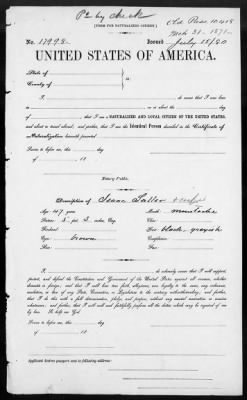 Pd by check
[FORM FOR NATURALIZED CITIZEN.]
Old Pass. 10418
Mch 31-1871-
No. 17998- Issued July 15/80
UNITED STATES OF AMERICA.
State of
County of
I, do swear that I was born
in on or about the day
of that I am a NATURALIZED AND LOYAL CITIZEN OF THE UNITED STATES,
and about to travel abroad; and further, that I am the Identical Person described in the Certificate of
Naturalization herewith presented.
Sworn to before me, this day
of 18
Notary Public.
Description of Isaac
Age: 47 years Mouth: moustache
Stature: 5 feet 3 inches, Eng.
Forehead: Hair: black-grayish
Eyes: brown Complexion:
Nose: Face:
I, do solemnly swear that I will support,
protect, and defend the Constitution and Government of the United States against all enemies, whether
domestic or foreign; and that I will bear true faith, allegiance, and loyalty to the same, any ordinance,
resolution, or law of any State, Convention, or Legislature to the contrary notwithstanding; and further,
that I do this with a full determination, pledge, and purpose, without any mental reservation or evasion
whatsoever; and further, that I will well and faithfully perform all the duties which may be required of me
by law. So help me God.
Sworn to before me, this day
of 18
Applicant desires passport sent to following address: